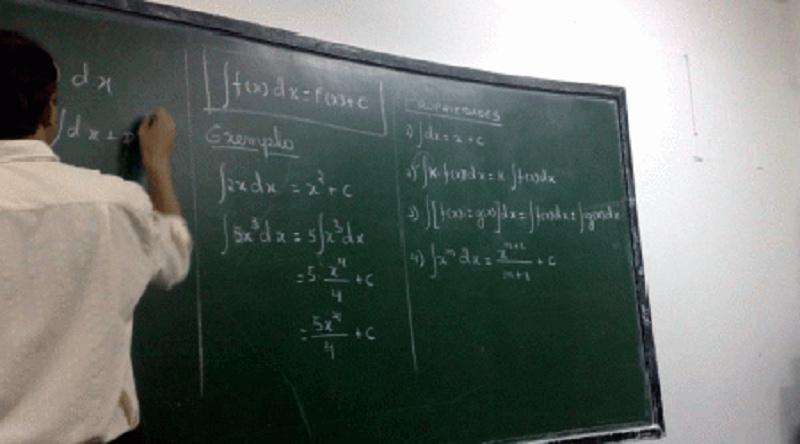 dx
∫dx + x
∫f(x)dx = F(x)+C
Exemplo
∫2xdx = x² + C
∫5x³dx = 5∫x³dx
= 5·x⁴/4 + C
= 5x⁴/4 + C
PROPRIEDADES
1) ∫dx = x + C
2) ∫K·f(x)dx = K ∫f(x)dx
3) ∫[f(x)±g(x)]dx = ∫f(x)dx ± ∫g(x)dx
4) ∫xⁿ dx = xⁿ⁺¹/n+1 + C